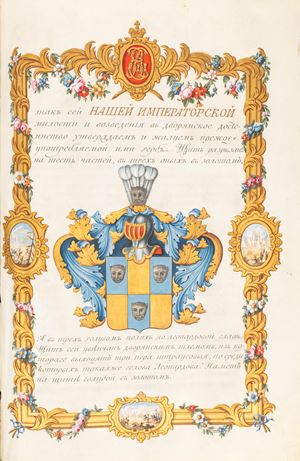 знакъ сей НАШЕЙ ИМПЕРАТОРСКОЙ
милости и возведенія въ дворянское досто
инство утверждаемъ и жалуемъ прежде
употребляемой ими гербъ. Щитъ разрѣзанъ
на шесть частей, въ трехъ оныхъ въ золотыхъ,
А въ трехъ голубомъ поляхъ по леопардовой главѣ.
Щитъ сей увѣнчанъ дворянскимъ шлемомъ, изъ ко
тораго выходятъ три пера штраусовыя, по среди
которыхъ такаяже голова Леопардова. Наметъ
на щитѣ голубой съ золотомъ.